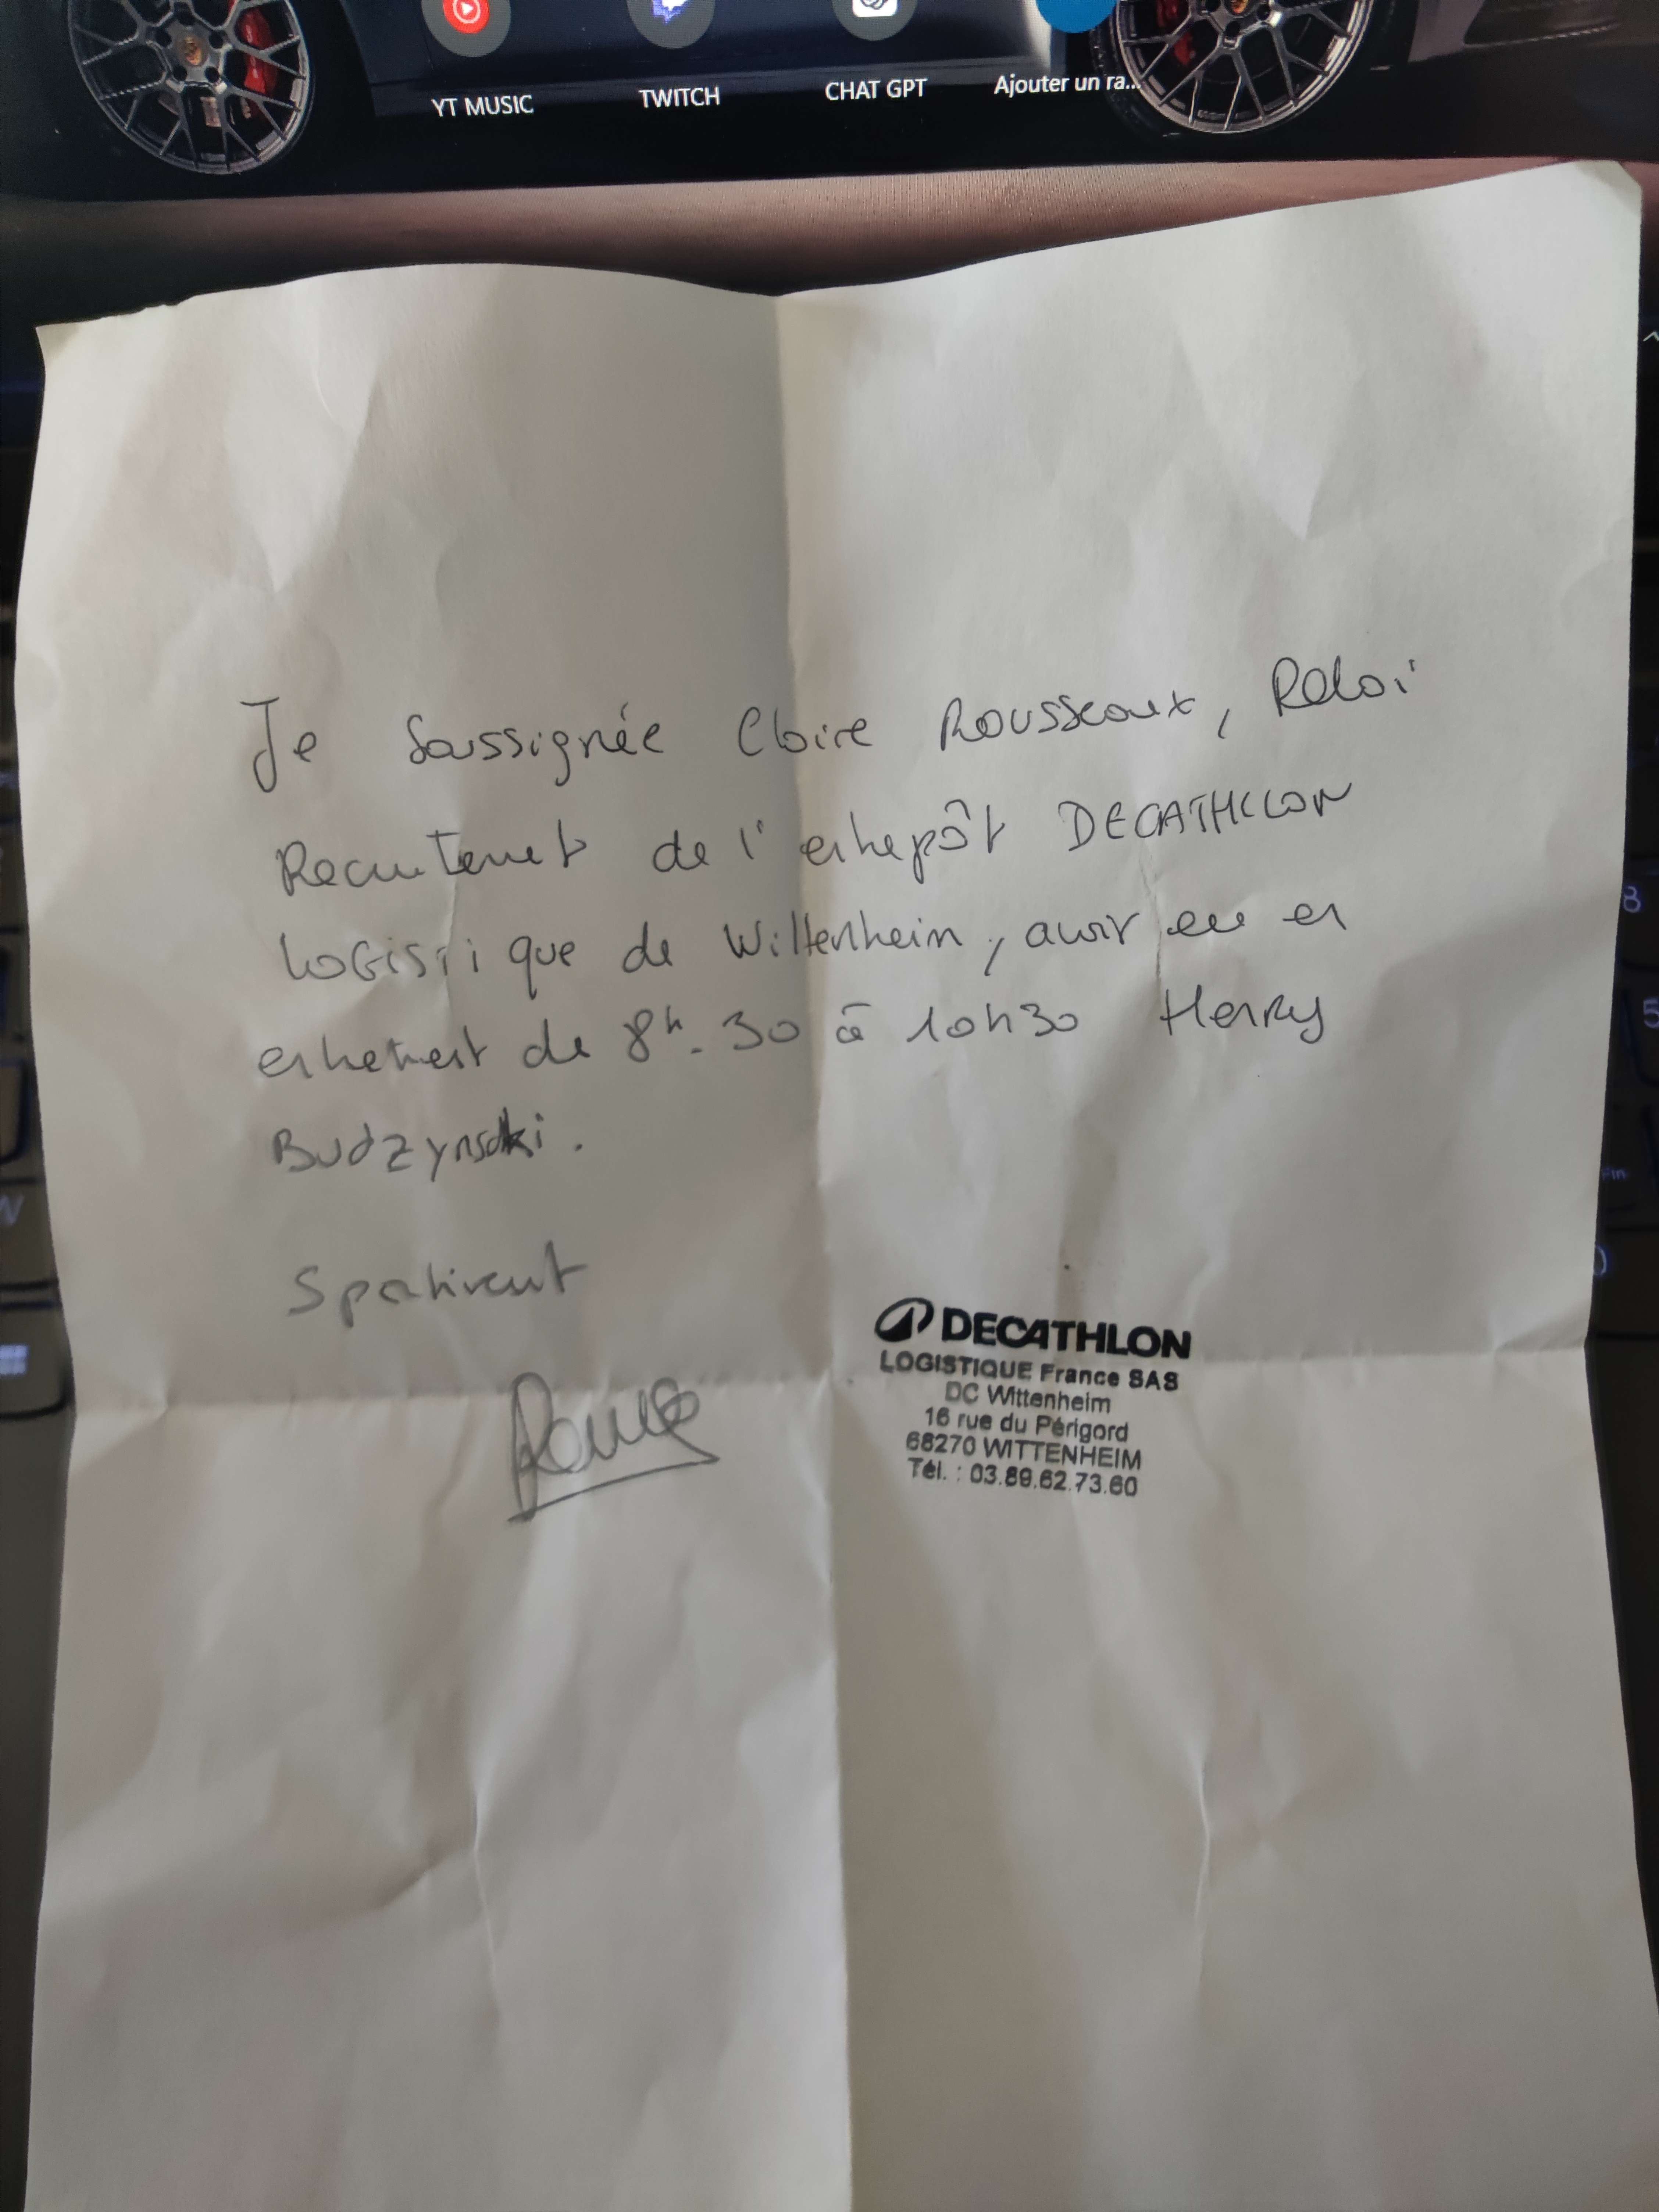 YT MUSIC
TWITCH
CHAT GPT
Ajouter un ra...
Je Soussignée Claire Rousseaux, Relai
Recrutement de l'entrepôt DECATHLON
LOGISTique de Wittenheim, avoir eu en
entretient de 8h.30 à 10h30 Henry
Budzynski.
Sportivement
DECATHLON
LOGISTIQUE France SAS
DC Wittenheim
16 rue du Périgord
68270 WITTENHEIM
Tél. : 03.89.62.73.60